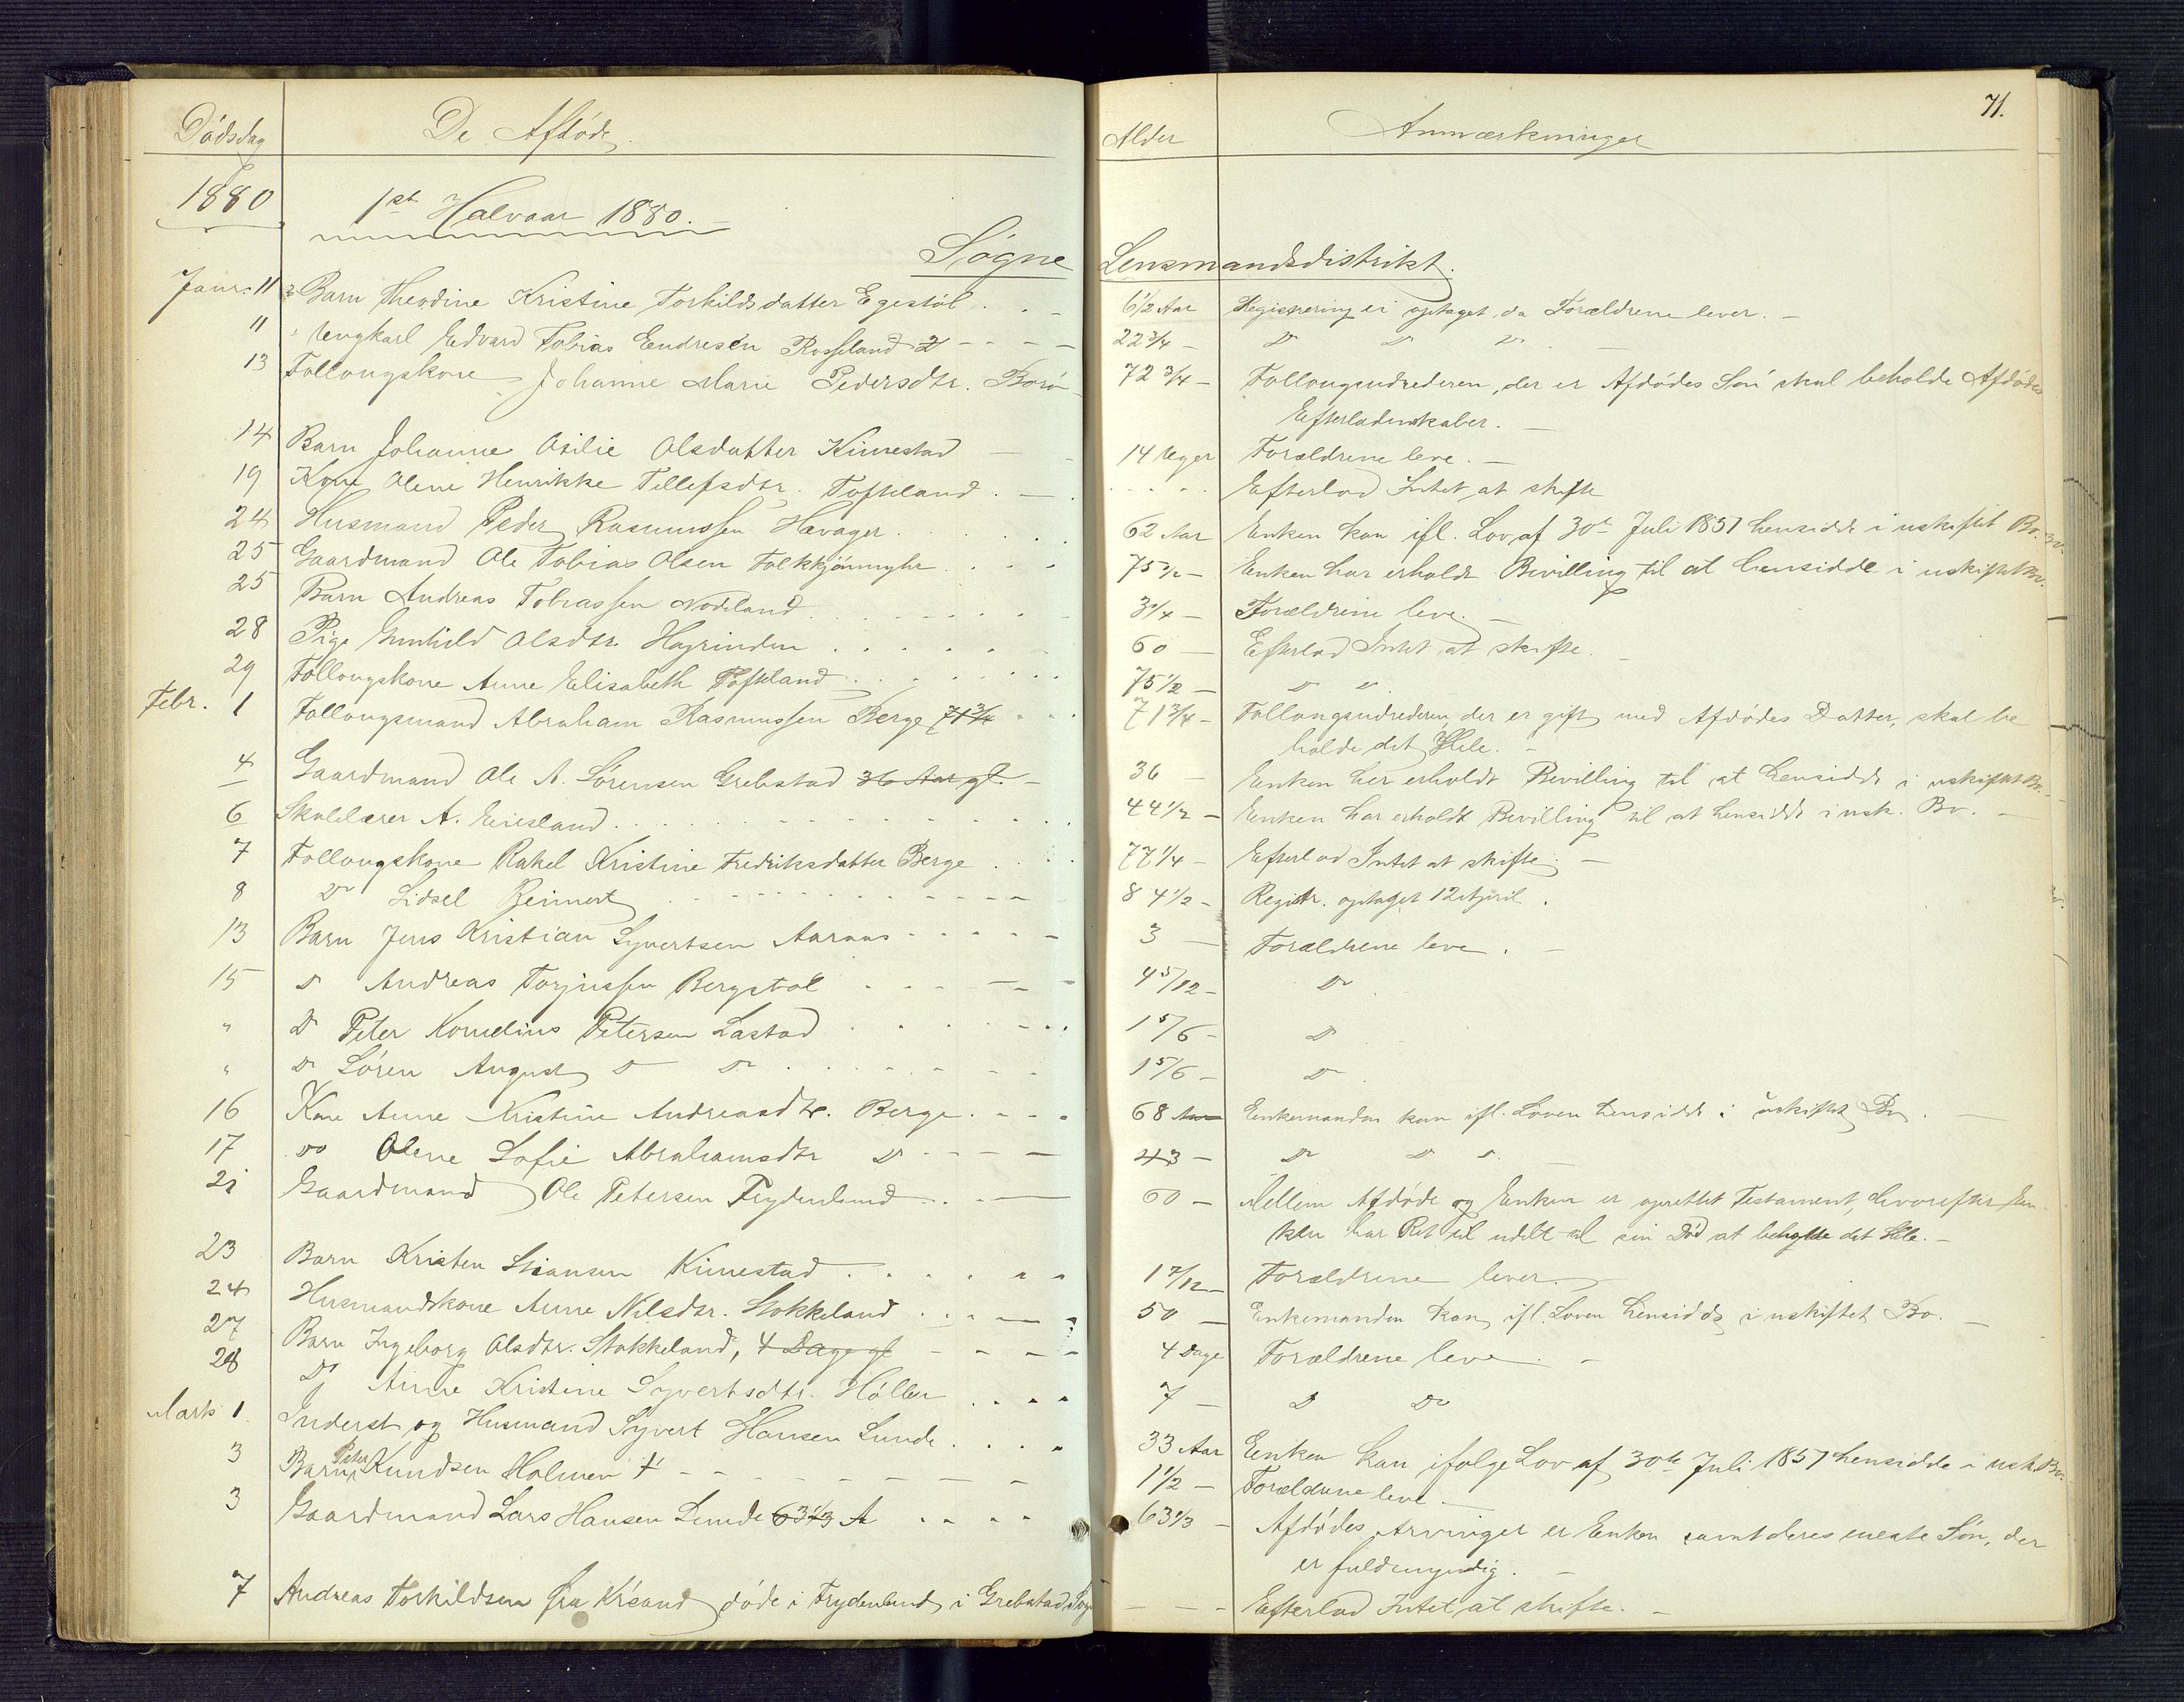 71.
Dödsdag De Afdöde. Alder Anmærkninger
1880 1ste Halvaar 1880.
Søgne Lensmandsdistrikt.
Janr. 11 Barn Theodine Kristine Torkildsdatter Egestöl . . - 6 1/2 Aar Registrering ei optaget, da Forældrene lever. -
11 Ungkarl Edvard Tobias Eendresen Rosseland - - - - 22 3/4 - Do Do Do -
13 Follougskone Johanne Marie Pedersdtr. Borö - 72 3/4 - Follougsudrederen, der er Afdödes Sön skal beholde Afdödes
Efterladenskaber. -
14 Barn Johanne Osilie Olsdatter Kimestad - - 14 Uger Forældrene leve. -
19 Kone Oleni Henrikke Tellefsdtr. Tofteland . - . . . . . Efterlod Intet at skifte
24 Husmand Peder Rasmussen Hævager . . . . . 62 Aar Enken kan ifl. Lov af 30te Juli 1851 hensidde i uskiftet Bo.
25 Gaardmand Ole Tobias Olsen Tolkkjönmyhr . . . . 75 1/2 - Enken har erholdt Bevilling til at hensidde i uskiftet Bo.
25 Barn Andreas Tobiassen Nodeland . . . . . . 3 1/4 - Forældrene leve. -
28 Pige Gunhild Olsdtr. Hagrinden . . . . . 60 - Efterlod Intet at skifte. -
29 Follougskone Anne Elisabeth Tofteland . . . . . . 75 1/2 - Do Do
Febr. 1 Follougsmand Abraham Rasmussen Berge 71 3/4 . . 71 3/4 - Follougsudrederen, der er gift med Afdödes Datter, skal be
holde det Hele. -
4 Gaardmand Ole A. Sörensen Grebstad 36 Aar gl. - 36 - Enken har erholdt Bevilling til at hensidde i uskiftet Bo. -
6 Skolelærer A. Eeiesland . . . . . . . . . . 44 1/2 - Enken har erholdt Bevilling til at hensidde i usk. Bo. -
7 Follougskone Rakel Kristine Fredriksdatter Berge . . . 77 1/4 - Efterlod Intet at skifte. -
8 Do Sidsel Reinert . . . . . . - - - 84 1/2 - Registr. optaget 12 April .
13 Barn Jens Kristian Syvertsen Aaraas - - - - - 3 - Forældrene leve . -
15 Do Andreas Torjussen Bergstöl . . . - - - 4 5/12 - Do
" Do Peter Kornelius Petersen Lastad . . . . . . 1 5/6 - Do
" Do Sören August Do Do . . . . . . 1 5/6 - Do
16 Kone Anne Kristine Andreasdtr. Berge . . . . 68 Aar Enkemanden kan ifl. Loven hensidde i uskiftet Bo . -
17 Do Olene Sofie Abrahamsdtr Do - - - - 43 - Do Do Do -
21 Gaardmand Ole Petersen Frydenlund . . - - 60 - Mellem Afdöde og Enken er oprettet Testament, hvorefter En-
ken har Ret til udelt til sin Död at beholde det Hele. -
23 Barn Kristen Stiansen Kimestad . . . . . . 1 7/12 - Forældrene lever. -
24 Husmandskone Anne Nilsdtr. Stokkeland . . - - 50 - Enkemanden kan ifl. Loven hensidde i uskiftet Bo. -
27 Barn Ingeborg Olsdtr. Stokkeland, 4 Dage gl - - - - 4 Dage Forældrene leve . -
28 Do Anne Kristine Syvertsdtr. Höllen . . . . 7 - Do Do
Marts 1. Inderst og Husmand Syvert Hansen Lunde . . . . 33 Aar Eenken kan ifølge Lov af 30te Juli 1851 hensidde i usk. Bo.
3 Barn Peter Knudsen Holmen - - - - - - - 1 1/2 - Forældrene leve. -
3 Gaardmand Lars Hansen Lunde 63 1/3 A . . . . 63 1/3 - Afdödes Arvinger er Enken samt deres eneste Sön, der
er fuldmyndig. -
7 Andreas Torkildsen fra Krsand döde i Frydenlund i Grebstad, Søgn - - - Efterlod Intet at skifte. -